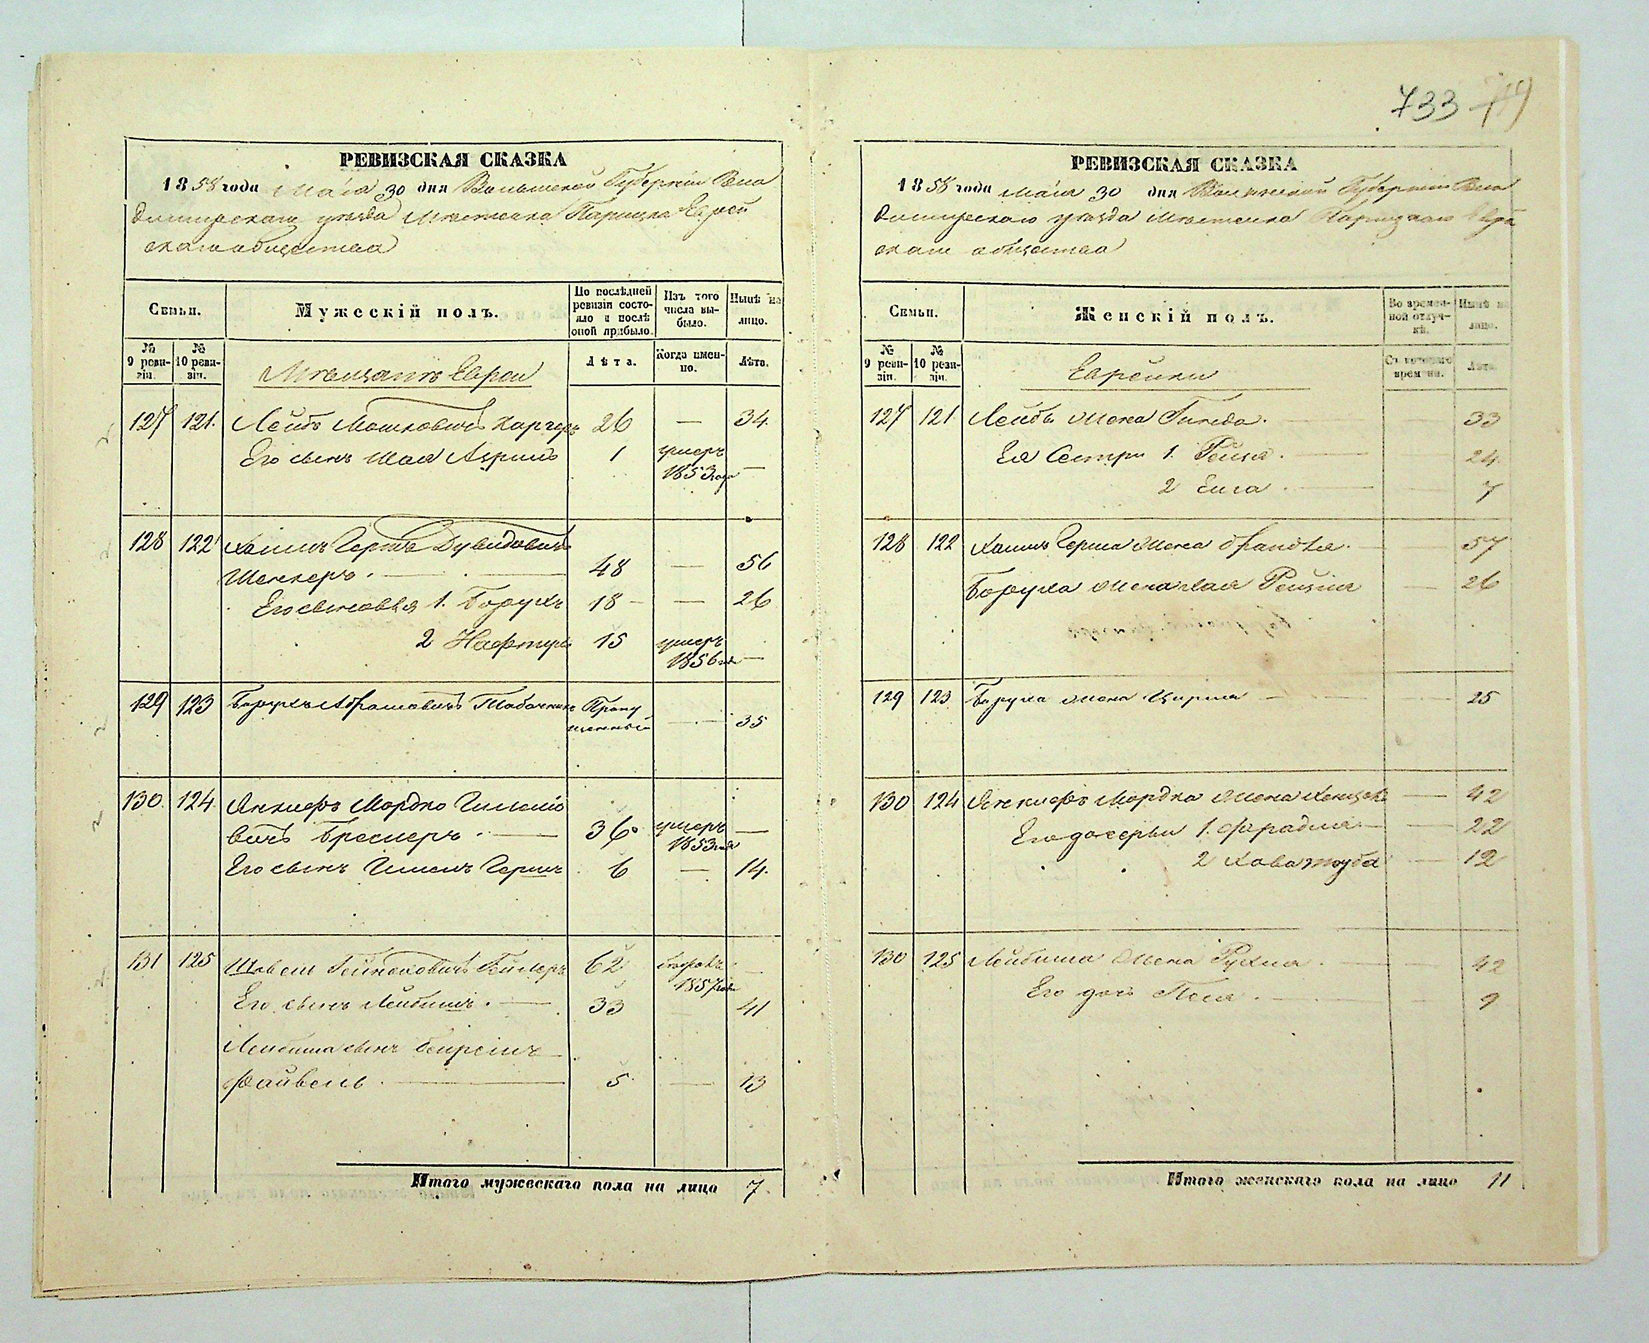 733
РЕВИЗСКАЯ СКАЗКА
1858 года Мая 30 дня Волынской Губернии Вла
димирскаго уезда Местечка Еврей
скаго общества
Семьи.
Мужескій полъ.
По послѣдней ревизіи состояло и послѣ оной прибыло.
Изъ того числа выбыло.
Нынѣ на лицо.
№ 9 ревизіи.
№ 10 ревизіи.
Мещане Евреи
Лѣта.
Когда именно.
Лѣта.
127 121. Лейбъ Мошковичъ 26 — 34
Его сынъ Шая 1 умеръ 1853 года —
128 122 Хаимъ Гершъ Дувидовичъ
Шенкеръ. 48 — 56
Его сыновья 1. Борухъ 18 — — 26
2 15 умеръ 1856 года —
129 123 Борухъ Абрамовичъ Табачникъ Пропущенный — 35
130. 124 Янкифъ Мордко
вичъ Бреслеръ 36 умеръ 1853 года —
Его сынъ Гершъ 6 — 14.
131 125 62 1857 года —
Его сынъ Лейбишъ. 33 41
Лейбиша сынъ
Файвель 5 — 13
Итого мужескаго пола на лицо 7.
РЕВИЗСКАЯ СКАЗКА
1858 года Мая 30 дня Волынской Губернии Вла
димирскаго уезда Местечка Еврей
скаго общества
Семьи.
Женскій полъ.
Во временной отлучкѣ.
Нынѣ на лицо.
№ 9 ревизіи.
№ 10 ревизіи.
Еврейки
Съ котораго времени.
Лѣта.
127 121 Лейбы жена 33
Ея Сестры 1. Рейзя. 24
2 7
128 122 Хаимъ Герша жена Брандля. 57
Боруха жена Хая 26
129 123 Боруха жена 25
130 124 Янкифъ Мордка жена 42
Его дочерьи 1. Фрадля 22
2 Хава 12
130 125 Лейбиша жена Рухля. 42
Его дочь Песя. 9
Итого женскаго пола на лицо 11